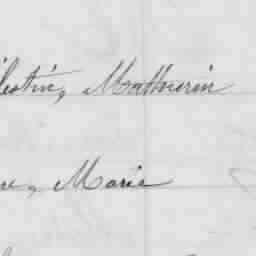 lestin, Mathurin
re, Marie